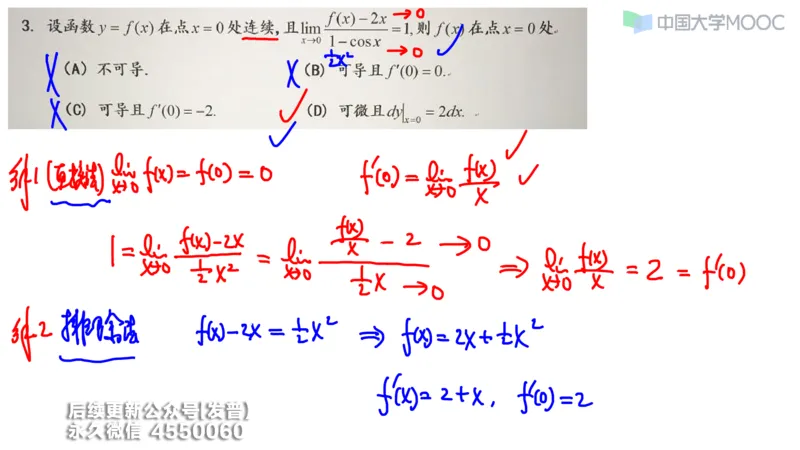 中国大学MOOC
3. 设函数 y = f(x) 在点 x = 0 处连续, 且 lim_{x→0} (f(x) − 2x)/(1 − cos x) = 1, 则 f(x) 在点 x = 0 处.
→0
→0
½x²
X (A) 不可导. X (B) 可导且 f′(0) = 0.
X (C) 可导且 f′(0) = −2. ✓ (D) 可微且 dy|_{x=0} = 2dx.
1 (直接法) lim_{x→0} f(x) = f(0) = 0 f′(0) = lim_{x→0} f(x)/x ✓
1 = lim_{x→0} (f(x) − 2x)/(½x²) = lim_{x→0} (f(x)/x − 2 → 0)/(½x → 0) ⇒ lim_{x→0} f(x)/x = 2 = f′(0)
2 排除法 f(x) − 2x = ½x² ⇒ f(x) = 2x + ½x²
f′(x) = 2 + x, f′(0) = 2
后续更新公众号(发普)
永久微信 4550060